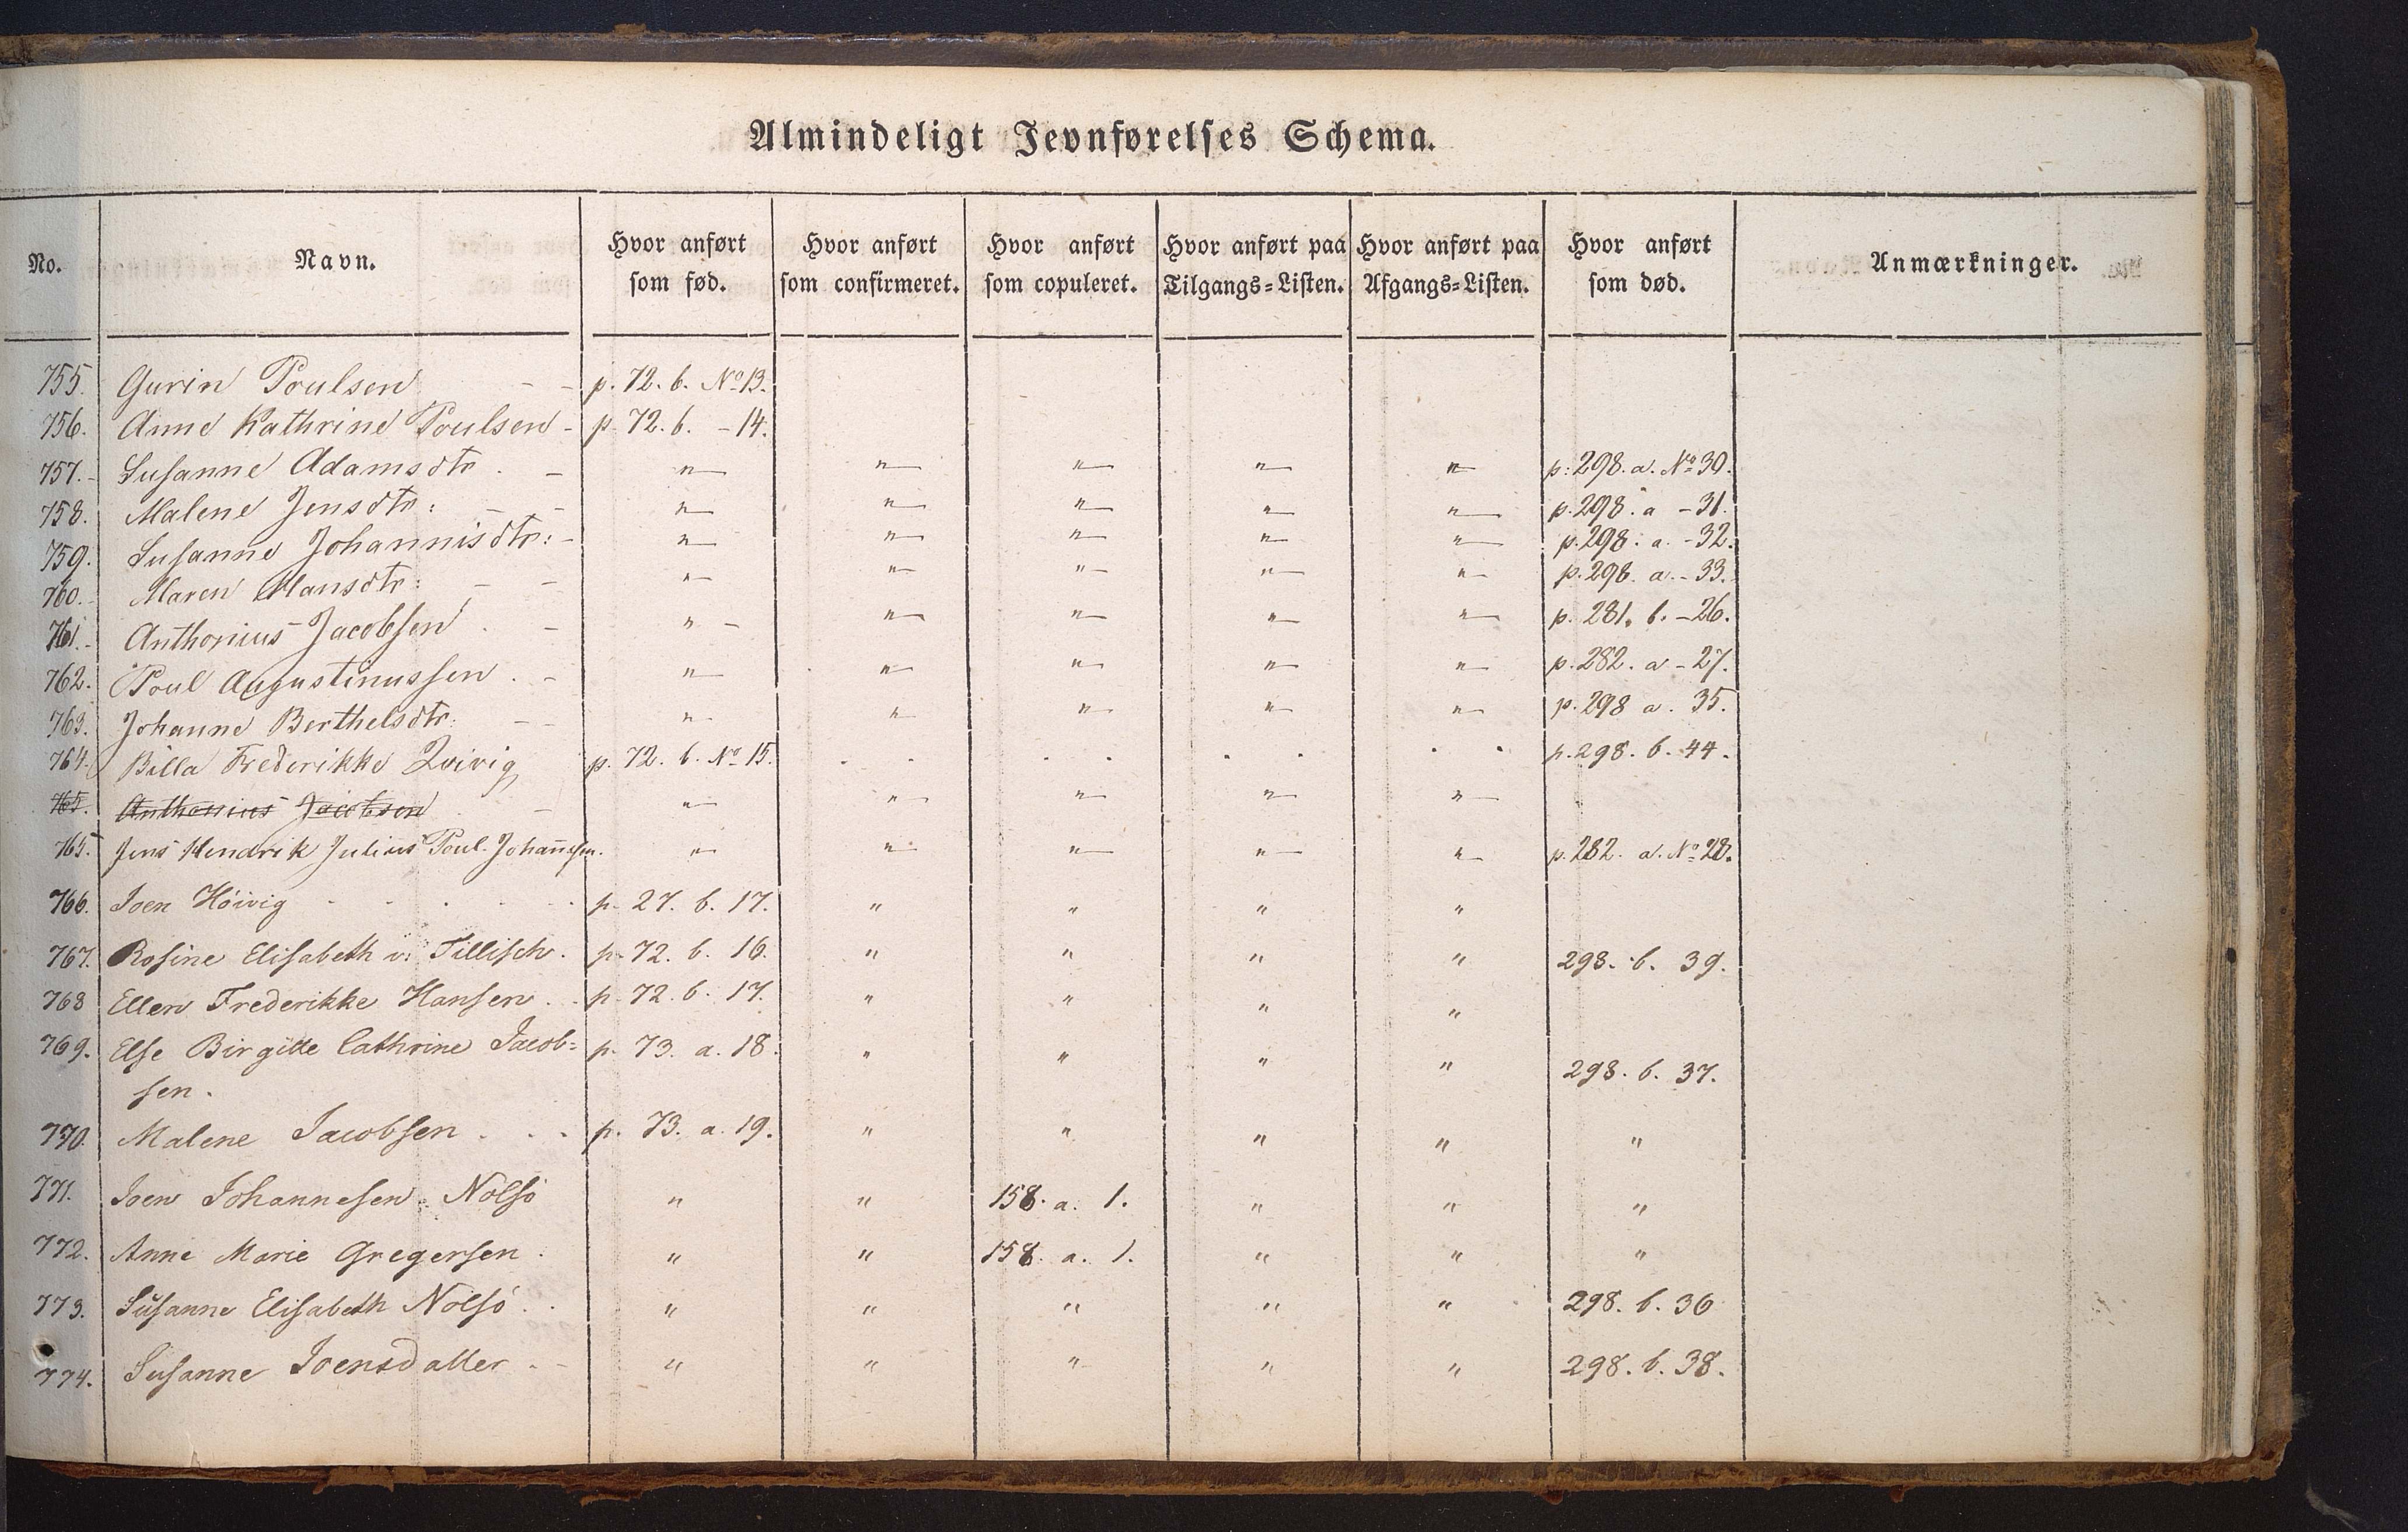 Almindeligt Jevnførelses Schema.
No. Navn. Hvor anført som fød. Hvor anført som confirmeret. Hvor anført som copuleret. Hvor anført paa Tilgangs=Listen. Hvor anført paa Afgangs=Listen. Hvor anført som død. Anmærkninger.
755. Gurin Poulsen - - p. 72. b. No 13.
756. Anne Kathrine Poulsen - p. 72. b. - 14.
757. - Susanne Adamsdtr. - " " " " " p: 298. a. No 30.
758. Malene Jensdtr: - - " " " " " p. 298. a - 31.
759. Susanne Johannisdtr: - " " " " " p. 298. a. - 32.
760. - Maren Hansdtr: - - " " " " " p. 298. a. - 33.
761. - Anthonius Jacobsen . - " " " " " p. 281. b. - 26.
762. Poul Augustinussen . - " " " " " p. 282. a - 27.
763. Johanne Berthelsdtr. - - " " " " " p. 298 a. 35.
764. Billa Frederikke Qvivig p. 72. b. No 15. . . . . . . . . p. 298. b. 44.
765. Anthonius Jacobsen - " " " " "
765. Jens Hendrik Julius Poul Johannesen. " " " " " p. 282. a. No 28.
766. Joen Höivig . . . . p. 27. b. 17. " " " "
767. Rosine Elisabeth v. Tillisch. p. 72. b. 16. " " " " 298. b. 39.
768 Ellen Frederikke Hansen . . p. 72. b. 17. " " " "
769. Else Birgitte Cathrine Jacob= p. 73. a. 18. " " " " 298. b. 37.
sen.
770. Malene Jacobsen . . . p. 73. a. 19. " " " " "
771. Joen Johannesen Nolsö " " 158. a. 1. " " "
772. Anne Marie Gregersen . " " 158. a. 1. " " "
773. Susanne Elisabeth Nolsö . . " " " " " 298. b. 36
774. Susanne Joensdatter . - " " " " " 298. b. 38.